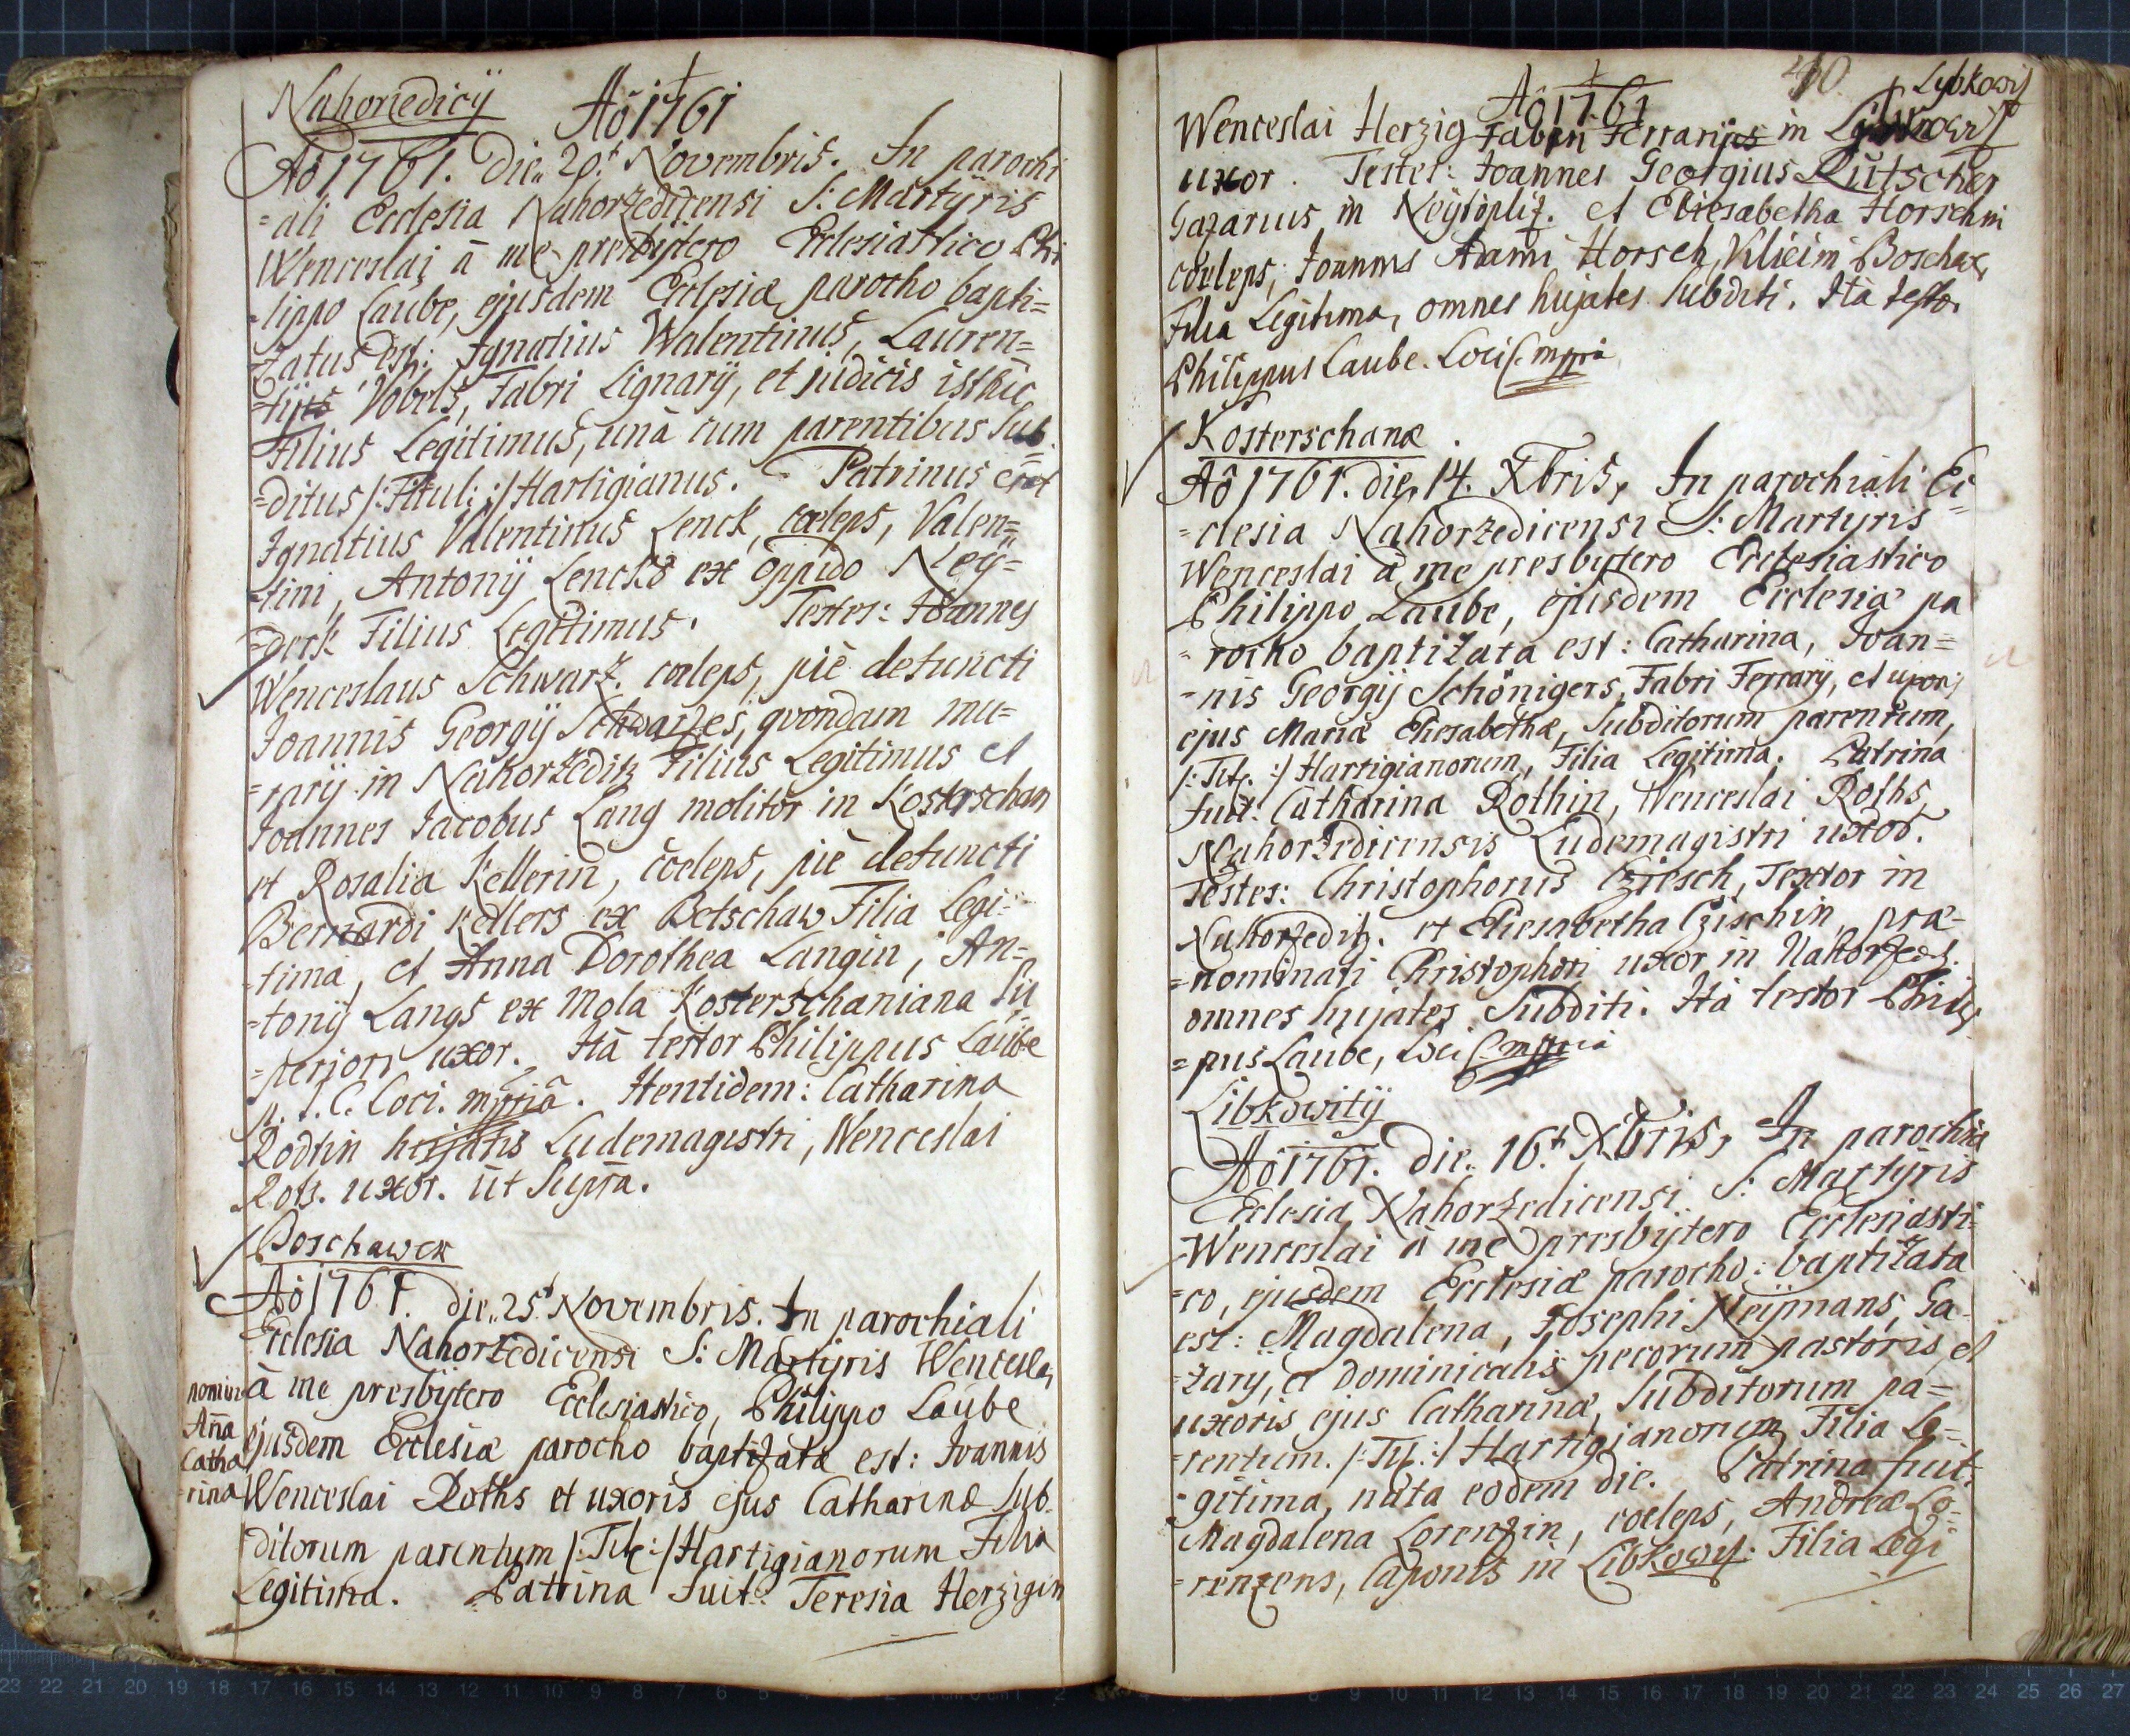 Nahoriedicij
Aô 1761
Aô 1761. Die 20t Novembris. In parochi
=ali Ecclesia Nahorzedicensi S: Martÿris
Wenceslai â me presbijtero Ecclesiastico Phi
=lippo Laube, ejusdem Ecclesiæ parocho bapti=
zatus est: Ignatius Walentinus, Lauren=
=tij Vobels, Fabri Lignarij, et judicis isthic
Filius Legitimus, unâ cum parentibus Sub
=ditus /: Titul: :/ Hartigianus. Patrinus erat
Ignatius Valentinus Lenck, cœleps, Valen=
=tini, Antonij Lencks ex oppido Neÿ=
=derk Filius Legitimus. Testes: Joannes
Wenceslaus Schwartz. cœleps, piè defuncti
Joannis Georgij Schwartzes, qvondam mu=
=rarij in Nahorzeditz Filius Legitimus et
Joannes Jacobus Lang molitor in Kosterschan
et Rosalia Kellerin, cœleps, piè defuncti
Bernardi Kellers ex Betschaw Filia Legi=
=tima, et Anna Dorothea Langin, An=
=tonij Langs ex Mola Kosterschaniana Su
=periori uxor. Ità testor Philippus Laube
p. t. C. Loci. mppiâ. Itentidem: Catharina
Rodtin hujatis Ludemagistri, Wenceslai
Rots. uxor. ut Supra.
Poschawek
Aô 1761. Die 25t Novembris. In parochiali
Ecclesia Nahorzedicensi S: Martijris Wenceslai
nomin â me presbijtero Ecclesiastico, Philippo Laube
Aña ejusdem Ecclesiæ parocho baptizata est: Joannis
Catha
rina Wenceslai Roths et uxoris ejus Catharinæ Sub
ditorum parentum /: Tit: :/ Hartigianorum Filia
Legitima. Patrina Fuit: Teresia Herzigin
40
Aô 1761
Lybkowis
Wenceslai Herzig Fabri Ferrarij in
uxor. Testes: Joannes Georgius Rutscher
Gazarius in Neÿtöplitz. et Eliesabetha Horschin
cœleps, Joannis Adami Horsch, Vilici in Boschaw
Filia Legitima, omnes hujates Subditi. Ità testor
Philippus Laube. Loci C. mppia
Kosterschanæ.
Aô 1761. Die 14. Xbris, In parochiali Ec
=clesia Nahorzedicensi S: Martÿris
Wenceslai â me presbytero Ecclesiastico
Philippo Laube, ejusdem Ecclesiæ pa
=rocho baptizata est: Catharina, Joan=
=nis Georgij Schönigers, Fabri Ferrarij, et uxoris
ejus Mariæ Eliesabethæ, Subditorum parentum,
/: Tit. :/ Hartigianorum, Filia Legitima. Patrina
fuit: Catharina Rothin, Wenceslai Roths,
Nahorzedicensis Ludemagistri uxor.
Testes: Christophorus Cziesch, Textor in
Nahorzeditz. et Eliesabetha Czischin, præ=
=nominati Christophori uxor in Nahorzed.
omnes hujates Subditi. Ità testor Philip
=pus Laube, Loci C. mppia
Libkowitij
Aô 1761. Die 16t Xbris, In parochia
Ecclesia Nahorzedicensi S: Martÿris
Wenceslai â me presbijtero Ecclesiasti
=co, ejusdem Ecclesiæ parocho: baptizata
est: Magdalena, Josephi Neijmans, Ga=
=zarij, et dominicalis pecorum pastoris, et
uxoris ejus Catharinæ, Subditorum pa=
=rentum. /: Tit: :/ Hartigianorum Filia Le=
=gitima, nata eodem die. Patrina fuit:
Magdalena Lorentzin, cœleps, Andreæ Lo=
=rentzens, Caponis in Libkowis. Filia Legi